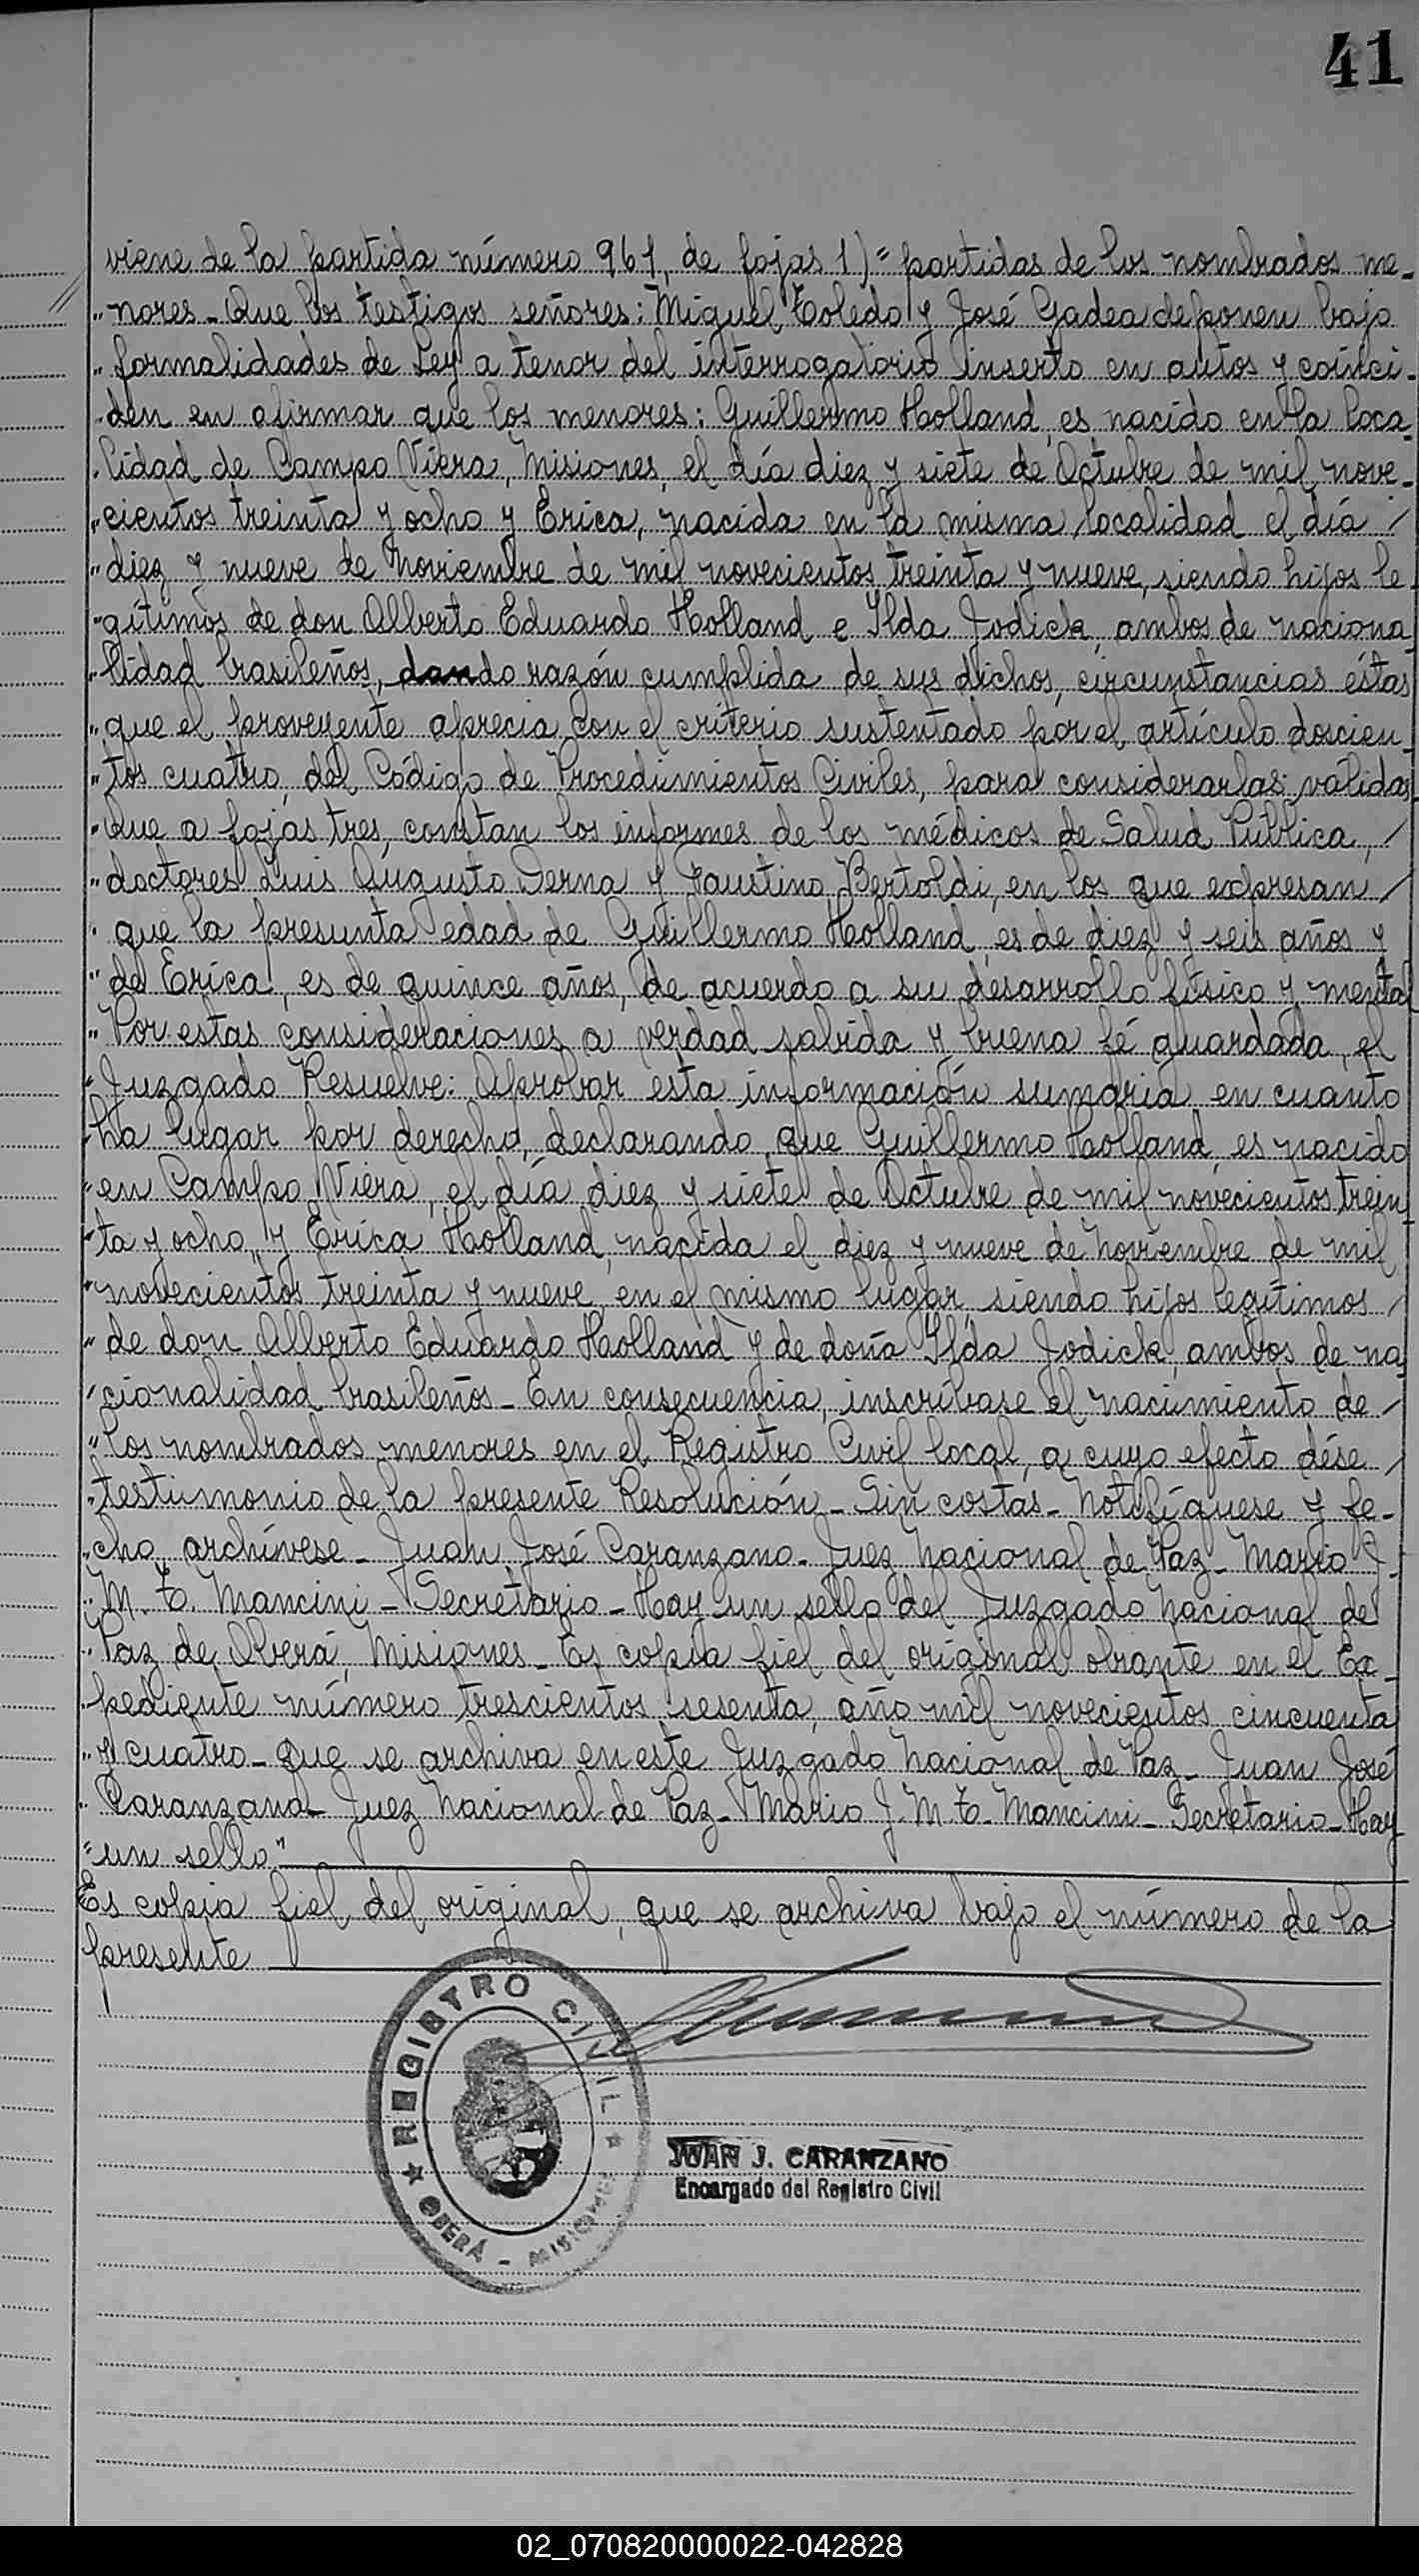 41
viene de la partida número 961, de fojas 1)=partidas de los nombrados me-
"nores-Que los testigos señores: Miguel Toledo y José Gadea deponen bajo
"formalidades de Ley a tenor del interrogatorio inserto en autos y coinci-
"den en afirmar que los menores: Guillermo Holland, es nacido en la loca-
"lidad de Campo Viera, Misiones, el día diez y siete de Octubre de mil nove-
"cientos treinta y ocho y Erica, nacida en la misma localidad el día /
"diez y nueve de Noviembre de mil novecientos treinta y nueve, siendo hijos le-
"gítimos de don Alberto Eduardo Holland e Ilda Jodick, ambos de naciona
"lidad brasileños, dando razón cumplida de sus dichos, circunstancias éstas
"que el proveyente aprecia con el criterio sustentado por el artículo doscien-
"tos cuatro, del Código de Procedimientos Civiles, para considerarlas válidas
"Que a fojas tres, constan los informes de los médicos de Salud Pública, /
"doctores Luis Augusto Derna y Faustino Bertoldi, en los que expresan /
"que la presunta edad de Guillermo Holland, es de diez y seis años y
"de Erica, es de quince años, de acuerdo a su desarrollo físico y mental
"Por estas consideraciones a verdad sabida y buena fé guardada, el
"Juzgado Resuelve: Aprobar esta información sumaria en cuanto
"ha lugar por derecho, declarando que Guillermo Holland, es nacido
"en Campo Viera, el día diez y siete de Octubre de mil novecientos trein
"ta y ocho, y Erica Holland, nacida el diez y nueve de Noviembre de mil
"novecientos treinta y nueve, en el mismo lugar, siendo hijos legítimos /
"de don Alberto Eduardo Holland y de doña Ilda Jodick, ambos de na
"cionalidad brasileños-En consecuencia, inscríbase el nacimiento de /
"los nombrados menores en el Registro Civil local, a cuyo efecto dése /
"testimonio de la presente Resolución-Sin costas-Notifíquese y fe-
"cho, archívese-Juan José Caranzano-Juez Nacional de Paz-Mario J.
"M. T. Mancini-Secretario-Hay un sello del Juzgado Nacional de
"Paz de Oberá, Misiones-Es copia fiel del original obrante en el Ex-
"pediente número trescientos sesenta, año mil novecientos cincuenta
"y cuatro-que se archiva en este Juzgado Nacional de Paz-Juan José
"Caranzano-Juez Nacional de Paz-Mario J. M. T. Mancini-Secretario-Hay
"un sello"
Es copia fiel del original, que se archiva bajo el número de la
presente
REGISTRO CIVIL
OBERÁ - MISIONES
JUAN J. CARANZANO
Encargado del Registro Civil
02_070820000022-042828